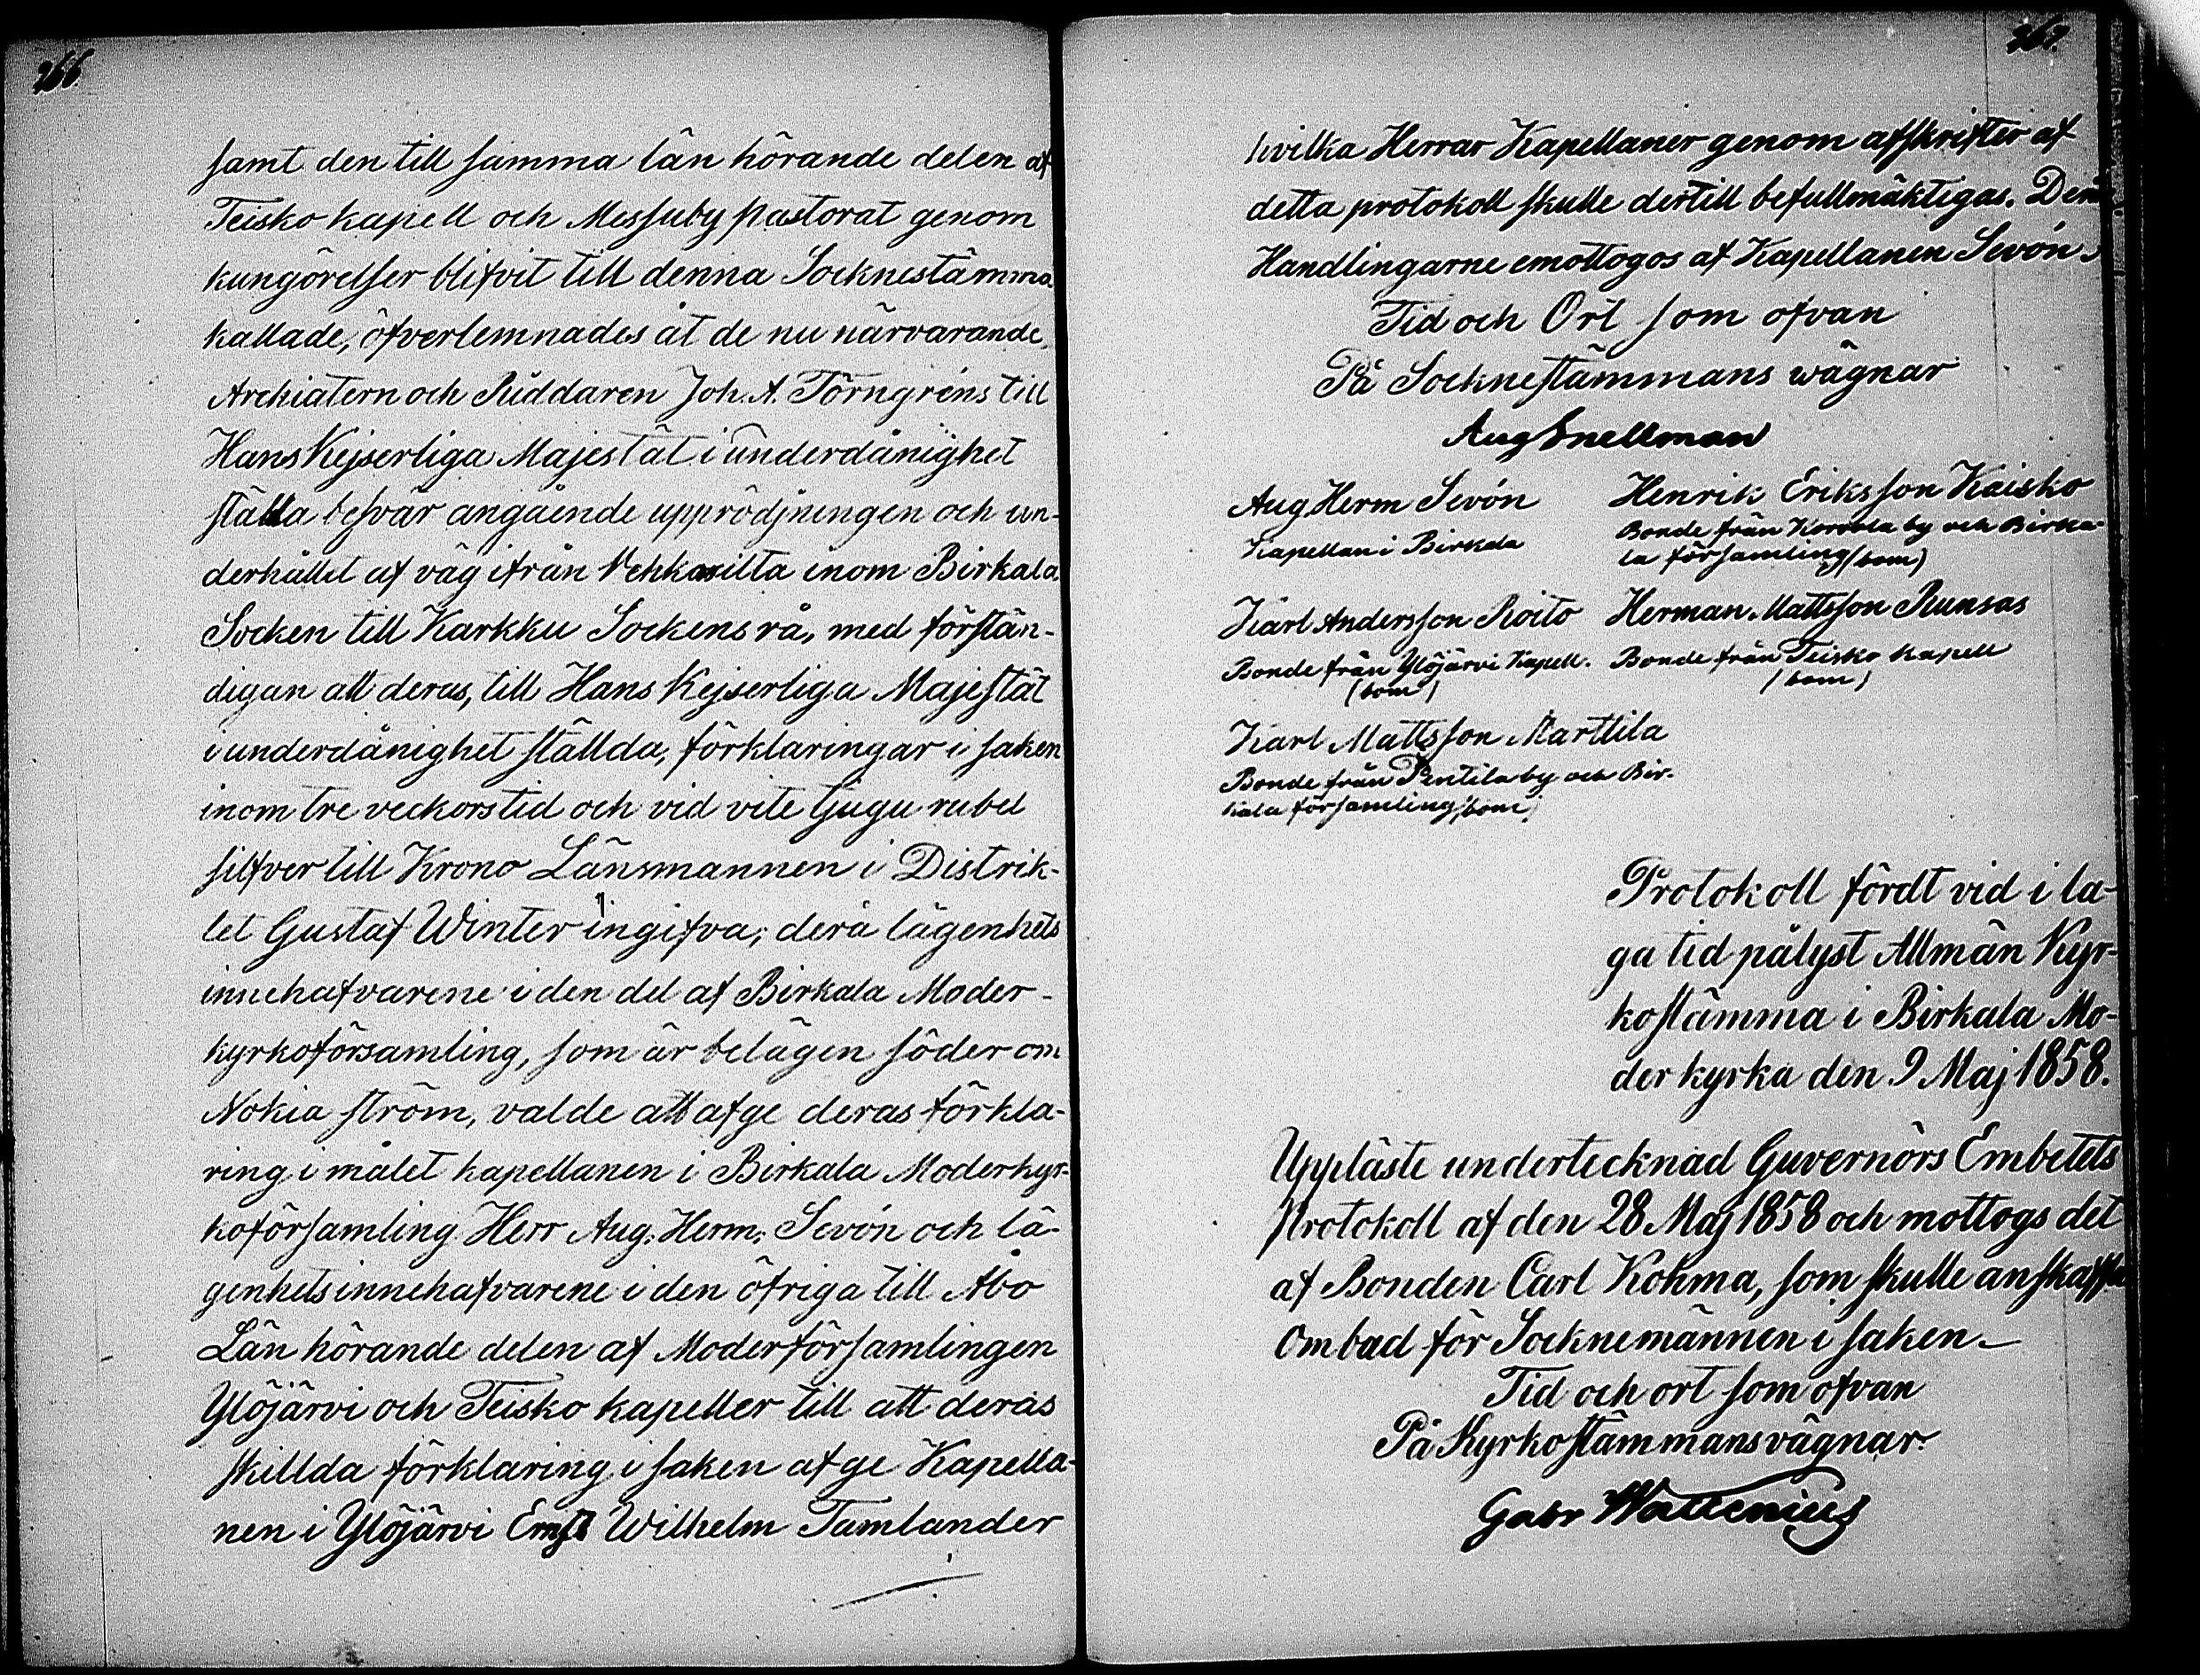 266.
samt den till samma län hörande delen af
Teisko kapell och Messuby pastorat genom
kungörelser blifvit till denna Socknestämma
kallade, öfverlemnades åt de nu närvarande,
Archiatern och Riddaren Joh. A. Törngréns till
Hans Kejserliga Majestät i underdånighet
ställa besvär angående upprödjningen och un-
derhållet af väg ifrån Vehkasilta inom Birkala
Socken till Karkku Sockens rå, med förstän-
digan att deras, till Hans Kejserliga Majestät
i underdånighet ställda, förklaringar i saken
inom tre veckors tid och vid vite tjugu rubel
silfver till Krono Länsmannen i Distrik-
tet Gustaf Winter ingifva; derå lägenhets
innehafvarene i den del af Birkala Moder-
kyrkoförsamling, som är belägen söder om
Nokia ström, valde att afge deras förkla-
ring i målet kapellanen i Birkala Moderkyr-
koförsamling Herr Aug. Herm. Sevón och lä-
genhetsinnehafvarene i den öfriga till Åbo
Län hörande delen af Moderförsamlingen
Ylöjärvi och Teisko kapeller till att deras
skillda förklaring i saken afge Kapella-
nen i Ylöjärvi Ernst Wilhelm Tamlander
267.
hvilka Herrar Kapellaner genom afskrifter af
detta protokoll skulle dertill befullmäktigas.
Handlingarne emottogos af Kapellanen Sevón.
Tid och Ort som ofvan
På Socknestämmans wägnar
Aug Snellman
Aug Herm Sevón
Kapellan i Birkala
Henrik Eriksson Kaisko
Bonde från by och Birka-
la församling (bom)
Karl Andersson Roito
Bonde från Ylöjärvi Kapell.
(bom)
Herman Mattsson Runsas
Bonde från Teisko kapell
(bom)
Karl Mattsson Marttila
Bonde från Pentila by och Bir-
kala församling (bom)
Protokoll fördt vid i la-
ga tid pålyst Allmän Kyr-
kostämma i Birkala Mo-
der kyrka den 9 Maj 1858.
Uppläste undertecknad Guvernörs Embetets
Protokoll af den 28 Maj 1858 och mottogs det
af Bonden Carl Kohma, som skulle anskaffa
Ombad för Socknemännen i saken-
Tid och ort som ofvan
På Kyrkostämmans vägnar.
Gabr Wallenius